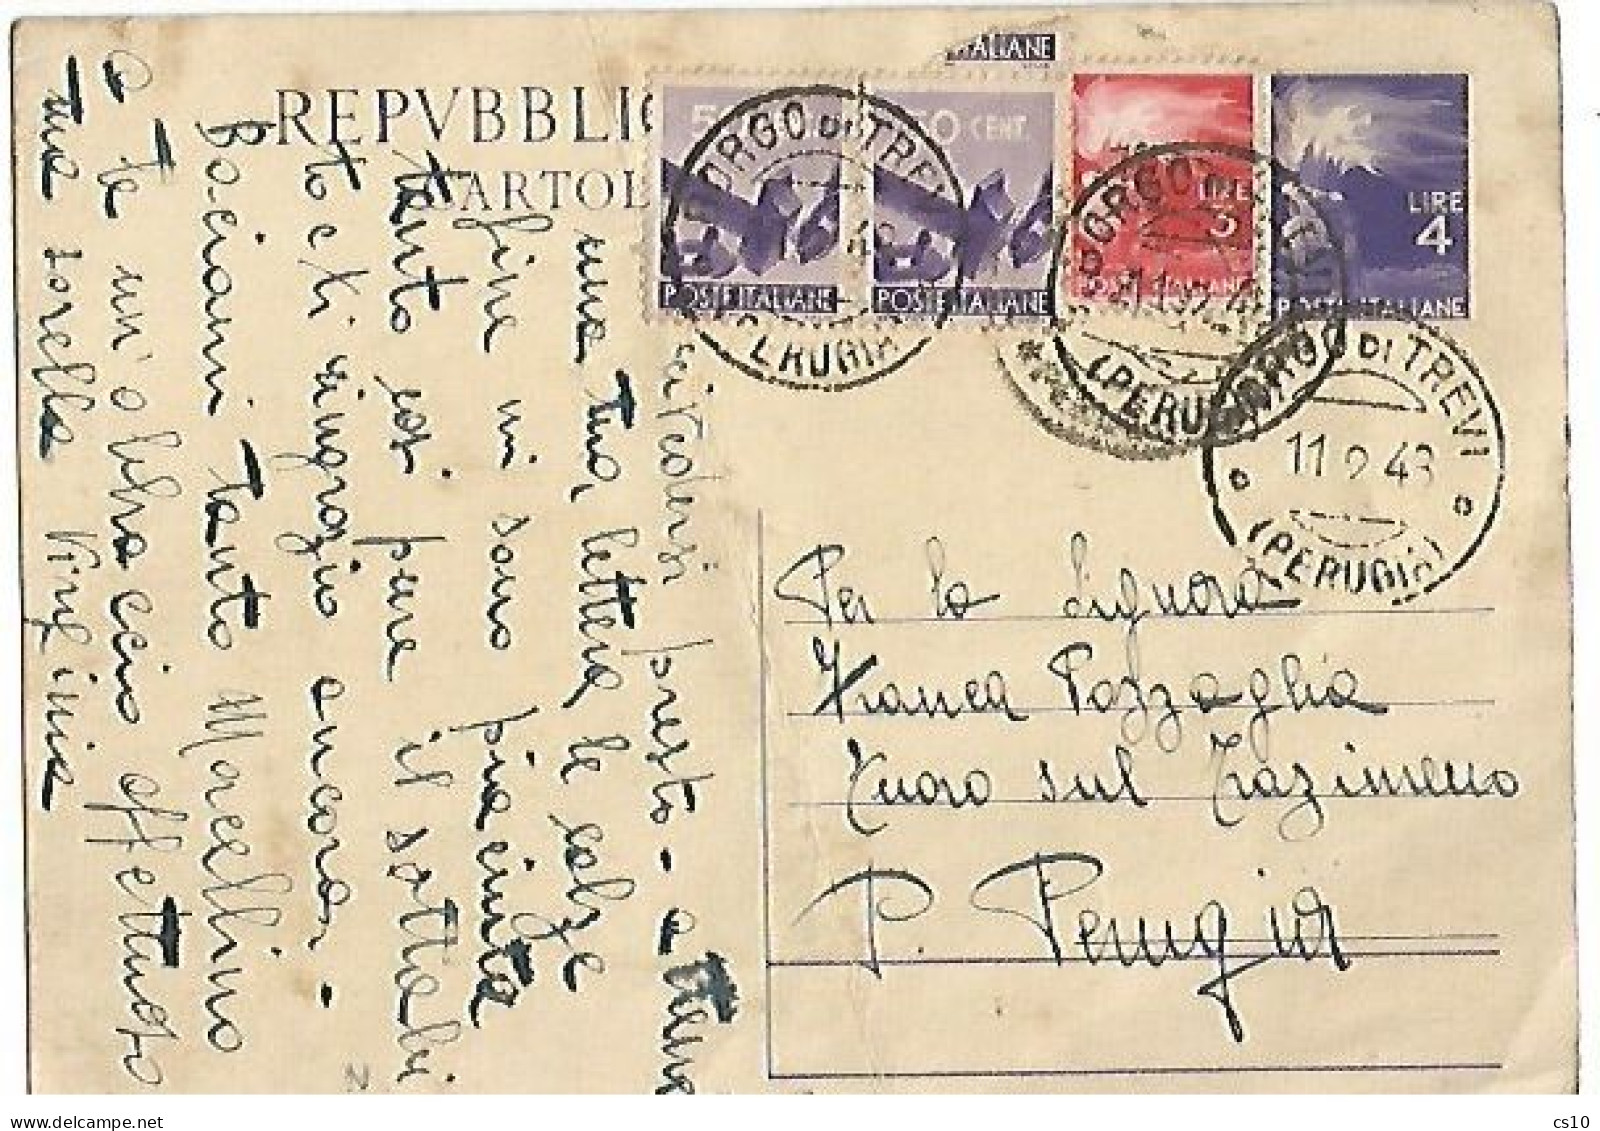 ITALIANE
REPVBBLIC
CARTOL
50 CENT.
POSTE ITALIANE
POSTE ITALIANE
LIRE
3
POSTE ITALIANE
LIRE
4
POSTE ITALIANE
BORGO DI TREVI
48
PERUGIA
BORGO DI TREVI
(PERUGIA)
BORGO DI TREVI
11 2 48
(PERUGIA)
Per la Signora
Franca Pazzaglia
Tuoro sul Trazimeno
P. Perugia
presto - attend
una tua lettera le calze
fine mi sono piaciute
tanto così pure il sottabi
to e ti ringrazio ancora -
Baciami tanto Marcellino
a te un'abbraccio affettuoso
tua sorella Virginia
2
delcampe.net
cs10